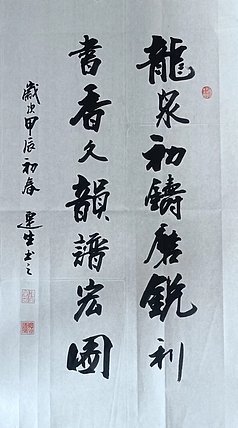 龍泉初鑄磨銳利
書香久韻譜宏圖
歲次甲辰初春 建生書之